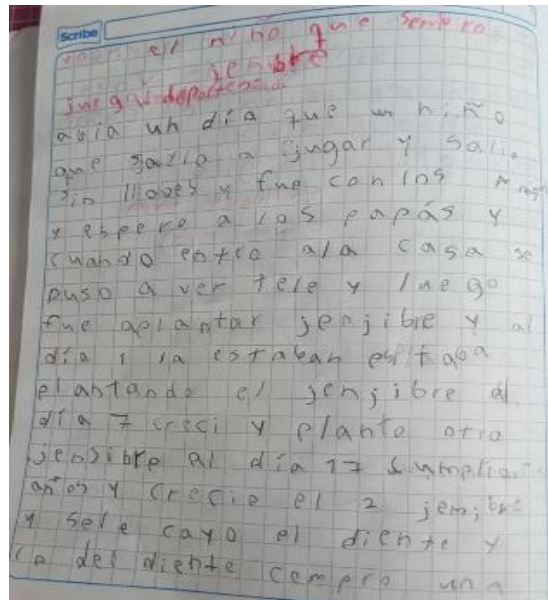 Scribe
el niño que sembro
jenjibre
juega deportes
abia un día que un niño
que salio a jugar y salio
sin llaves y fue con los
y espero a los papás y
cuando entro ala casa se
puso a ver tele y luego
fue aplantar jenjibre y al
día 1 ia estaban estaba
plantando el jenjibre al
día 7 creci y planto otro
jenjibre al día 17 cumplio
años y crecio el 2 jemjbre
y sele cayo el diente y
co del diente compro una